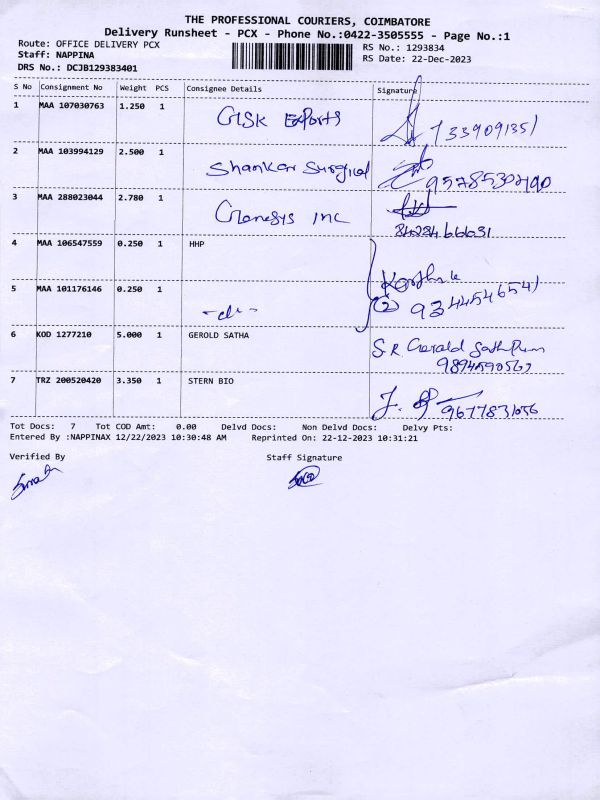 THE PROFESSIONAL COURIERS, COIMBATORE
Delivery Runsheet - PCX - Phone No.:0422-3505555 - Page No.:1
Route: OFFICE DELIVERY PCX
Staff: NAPPINA
DRS No.: DCJB129383401
RS No.: 1293834
RS Date: 22-Dec-2023
S No Consignment No Weight PCS Consignee Details Signature
1 MAA 107030763 1.250 1 GSK Exports
2 MAA 103994129 2.500 1 Shankar Surgical
3 MAA 288023044 2.780 1 Genesys Inc
4 MAA 106547559 0.250 1 HHP
5 MAA 101176146 0.250 1 -do- (2)
6 KOD 1277210 5.000 1 GEROLD SATHA S.R. Gerald
7 TRZ 200520420 3.350 1 STERN BIO J.
Tot Docs: 7 Tot COD Amt: 0.00 Delvd Docs: Non Delvd Docs: Delvy Pts:
Entered By :NAPPINAX 12/22/2023 10:30:48 AM Reprinted On: 22-12-2023 10:31:21
Verified By Staff Signature